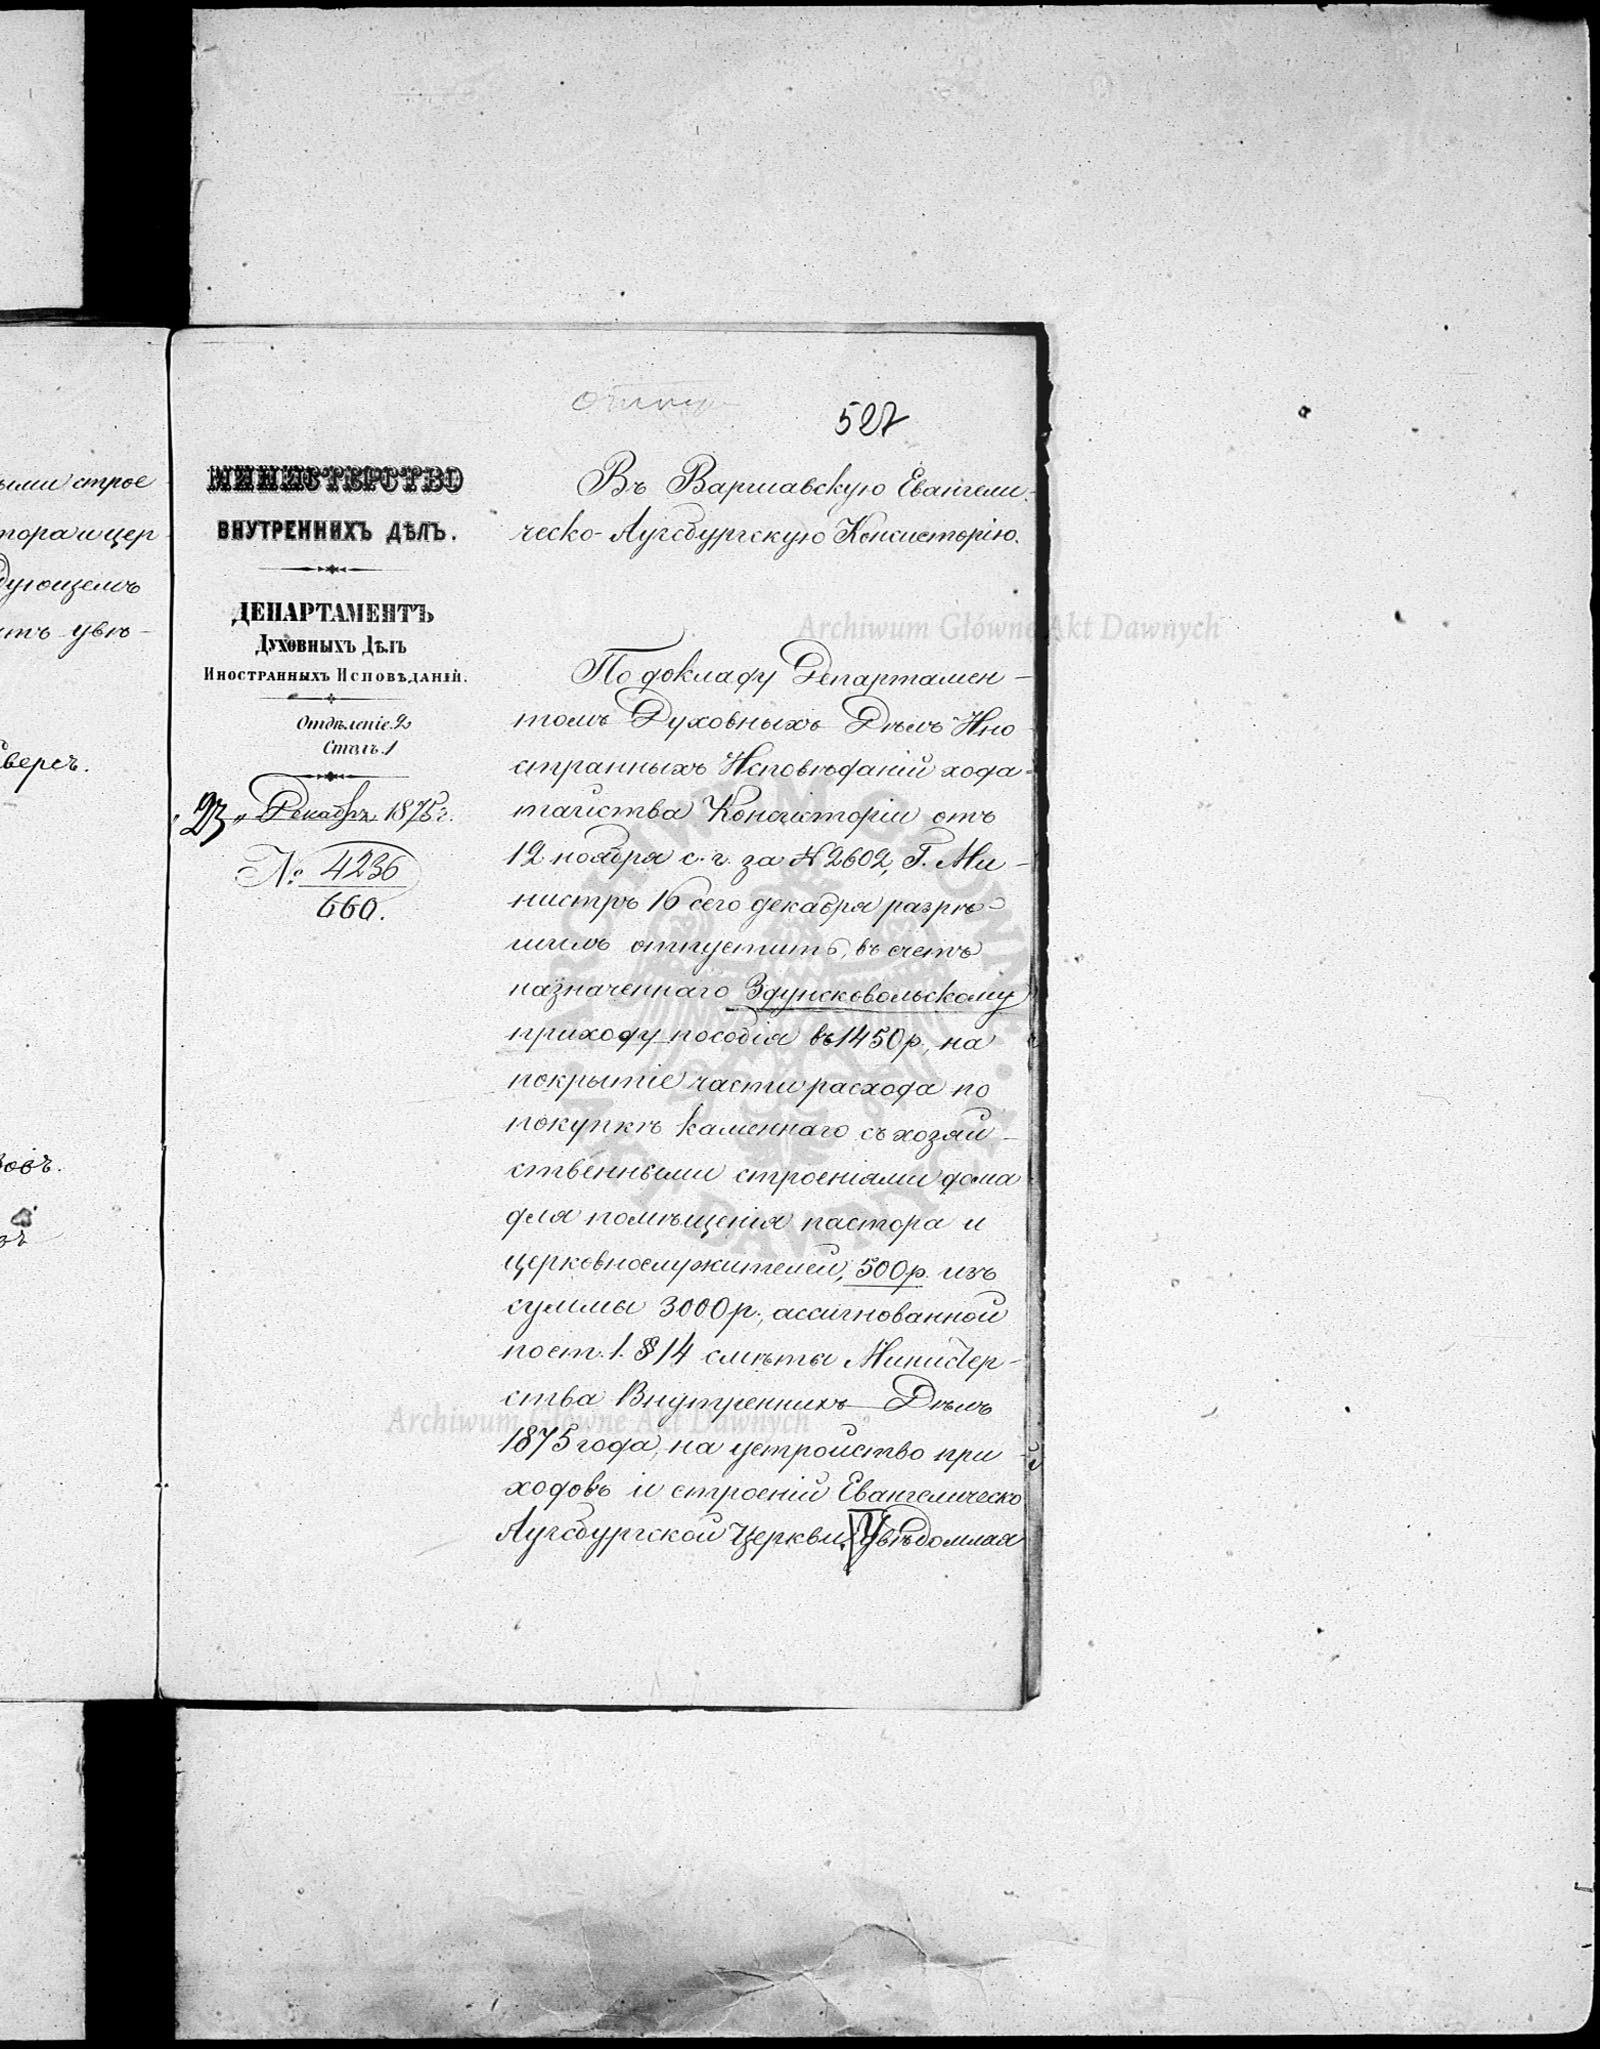 ыми строе
тора и цер
дующемъ
итъ увѣ-
Сверсъ.
527
МИНИСТЕРСТВО
ВНУТРЕННИХЪ ДѢЛЪ.
ДЕПАРТАМЕНТЪ
ДУХОВНЫХЪ ДѢЛЪ
ИНОСТРАННЫХЪ ИСПОВѢДАНІЙ.
Отдѣленіе 2
Столъ 1
„23„ Декабря 1875 г.
№ 4236
660.
Въ Варшавскую Евангели-
ческо-Аугсбургскую Консисторію.
По докладу Департамен-
томъ Духовныхъ Дѣлъ Ино
странныхъ Исповѣданій хода-
тайства Консисторіи отъ
12 ноября с. г. за № 2602, Г. Ми-
нистръ 16 сего декабря разрѣ-
шилъ отпустить, въ счетъ
назначеннаго Здунсковольскому
приходу пособія въ 1450 р., на
покрытіе части расхода по
покупкѣ каменнаго съ хозяй-
ственными строеніями дома
для помѣщенія пастора и
церковнослужителей, 500 р. изъ
суммы 3000 р., ассигнованной
по ст. 1. § 14 смѣты Министер-
ства Внутреннихъ Дѣлъ
1875 года, на устройство при-
ходовъ и строеній Евангелическо
Аугсбургской Церкви. Увѣдомляя
Archiwum Główne Akt Dawnych
Archiwum Główne Akt Dawnych
ARCHIWUM GŁÓWNE AKT DAWNYCH